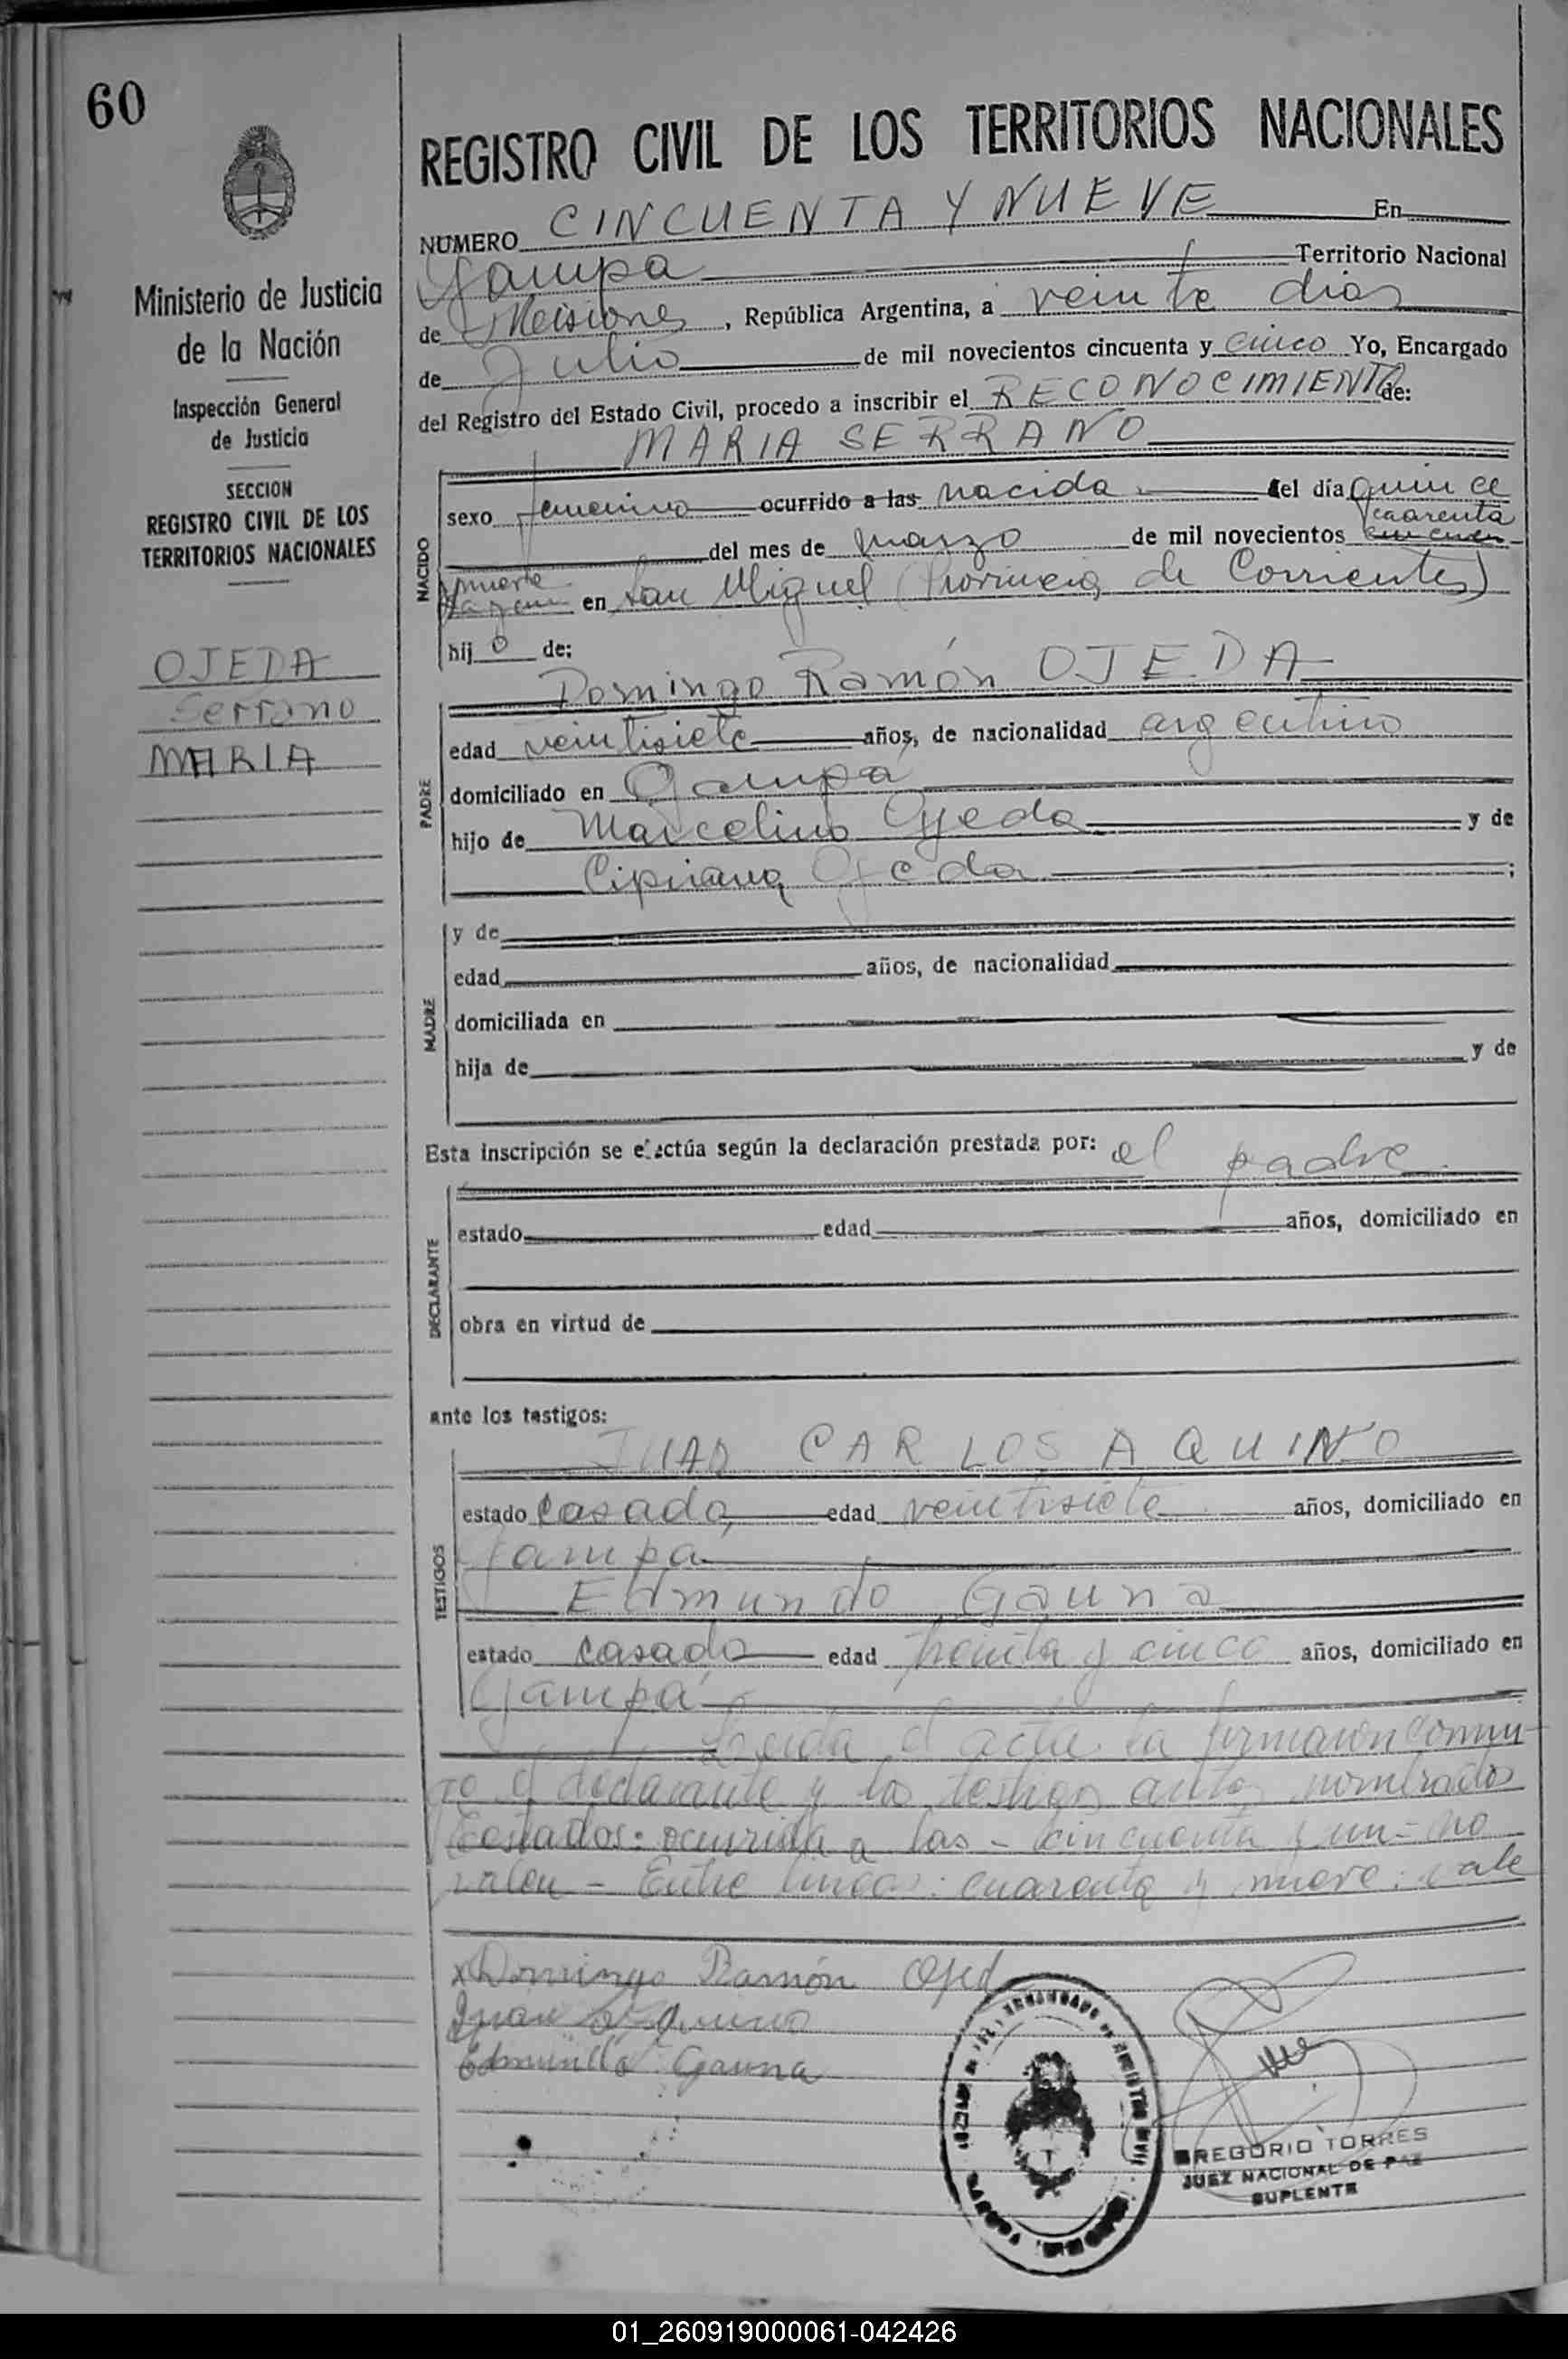 60
REGISTRO CIVIL DE LOS TERRITORIOS NACIONALES
NUMERO CINCUENTA Y NUEVE En
Territorio Nacional
de Misiones, República Argentina, a veinte dias
de Julio de mil novecientos cincuenta y cinco Yo, Encargado
del Registro del Estado Civil, procedo a inscribir el RECONOCIMIENTO de:
MARIA SERRANO
Ministerio de Justicia
de la Nación
Inspección General
de Justicia
SECCION
REGISTRO CIVIL DE LOS
TERRITORIOS NACIONALES
OJEDA
Serrano
MARIA
NACIDO
sexo femenino ocurrido a las nacida del día quince
cuarenta
del mes de marzo de mil novecientos
y nueve
en San Miguel (Provincia de Corrientes)
hijo de:
Domingo Ramón OJEDA
PADRE
edad veintisiete años, de nacionalidad argentino
domiciliado en
hijo de Marcelino Ojeda y de
Cipriana Ojeda ;
MADRE
y de
edad años, de nacionalidad
domiciliada en
hija de y de
Esta inscripción se efectúa según la declaración prestada por: el padre
DECLARANTE
estado edad años, domiciliado en
obra en virtud de
ante los testigos:
TESTIGOS
JUAN CARLOS AQUINO
estado casado, edad veintisiete años, domiciliado en
Edmundo Gauna
estado casado edad treinta y cinco años, domiciliado en
Leida el acta la firmaron conmi-
go el declarante y los testigos antes nombrados
Testados: ocurrida a las - cincuenta y un - no
valen - Entre lineas: cuarenta y nueve: vale
x Domingo Ramón Ojed
Juan Aquino
Edmundo Gauna
GREGORIO TORRES
JUEZ NACIONAL DE PAZ
SUPLENTE
01_260919000061-042426